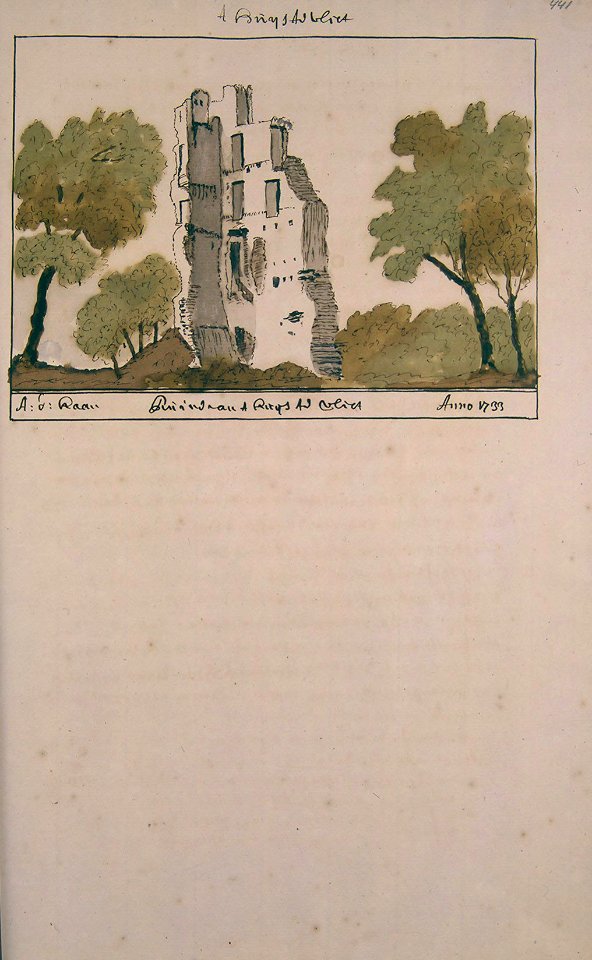 441
't Huys te Vliet
A: d: Haan Ruine van t Huys te Vliet Anno 1733